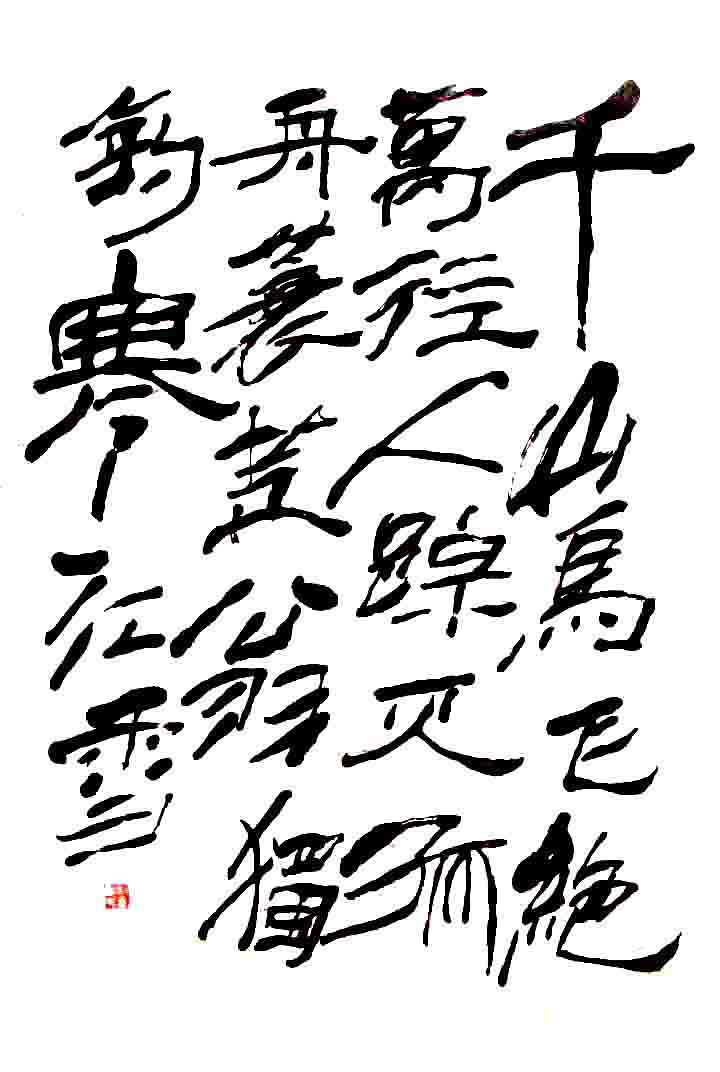 千山鳥飞絶
萬径人踪灭孤
舟蓑笠翁獨
釣寒江雪